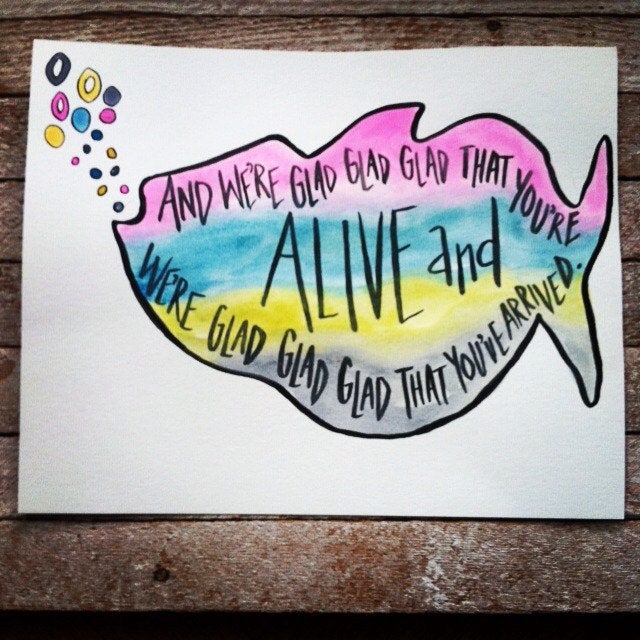 AND WE'RE GLAD GLAD GLAD THAT YOU'RE
ALIVE and
WE'RE GLAD GLAD GLAD THAT YOU'VE ARRIVED.